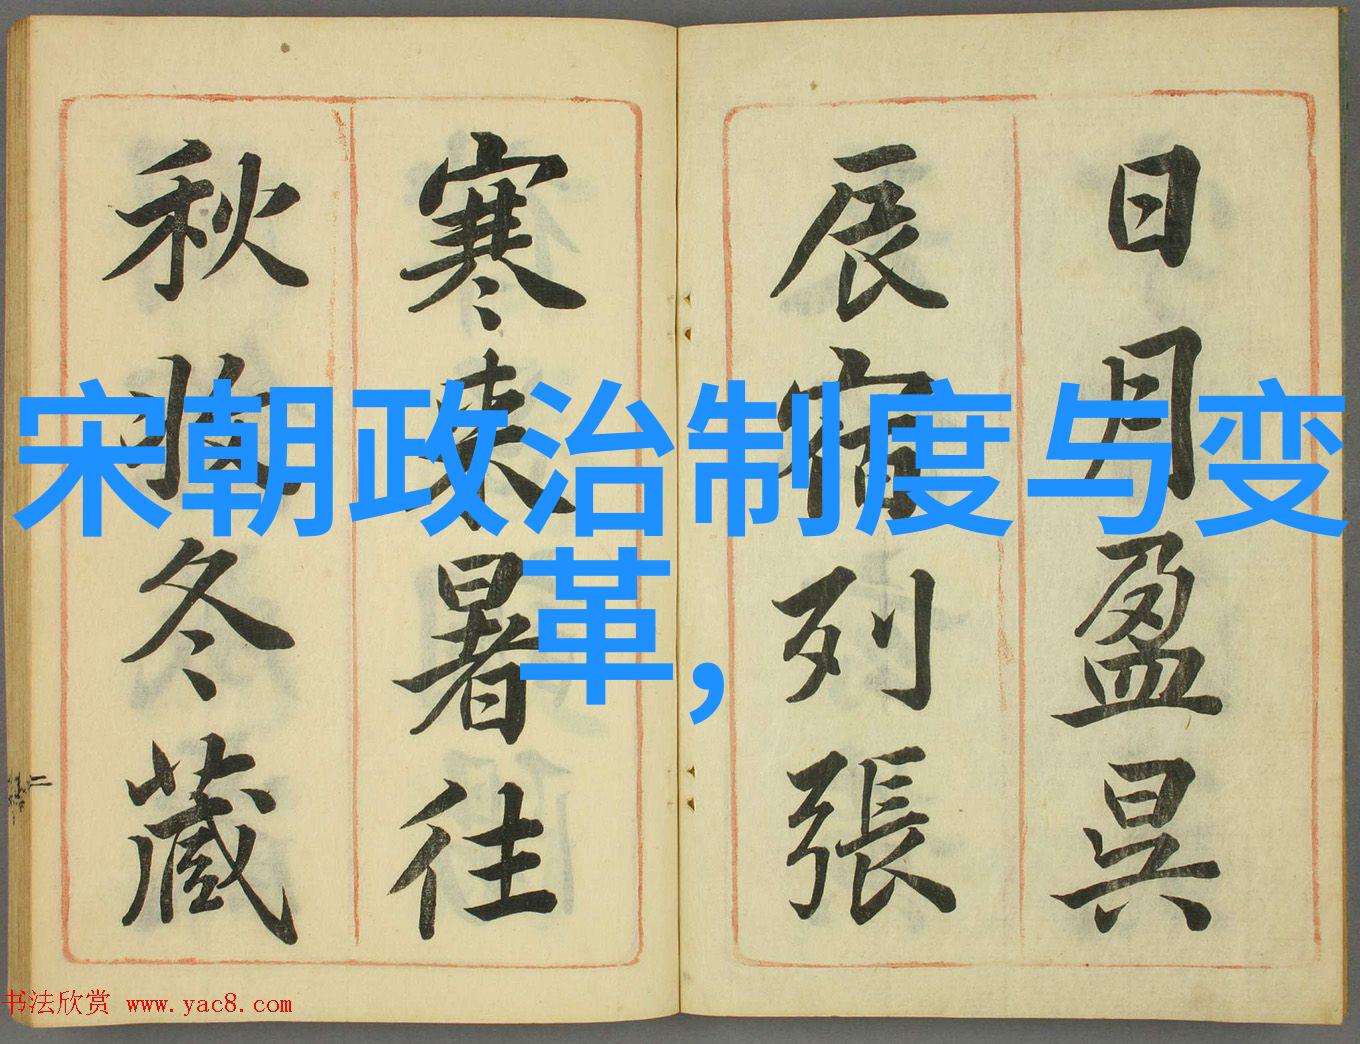 宋朝政治制度与变
革,
日月盈昃
辰宿列張
寒来暑往
秋收冬藏
书法欣赏 www.yac8.com